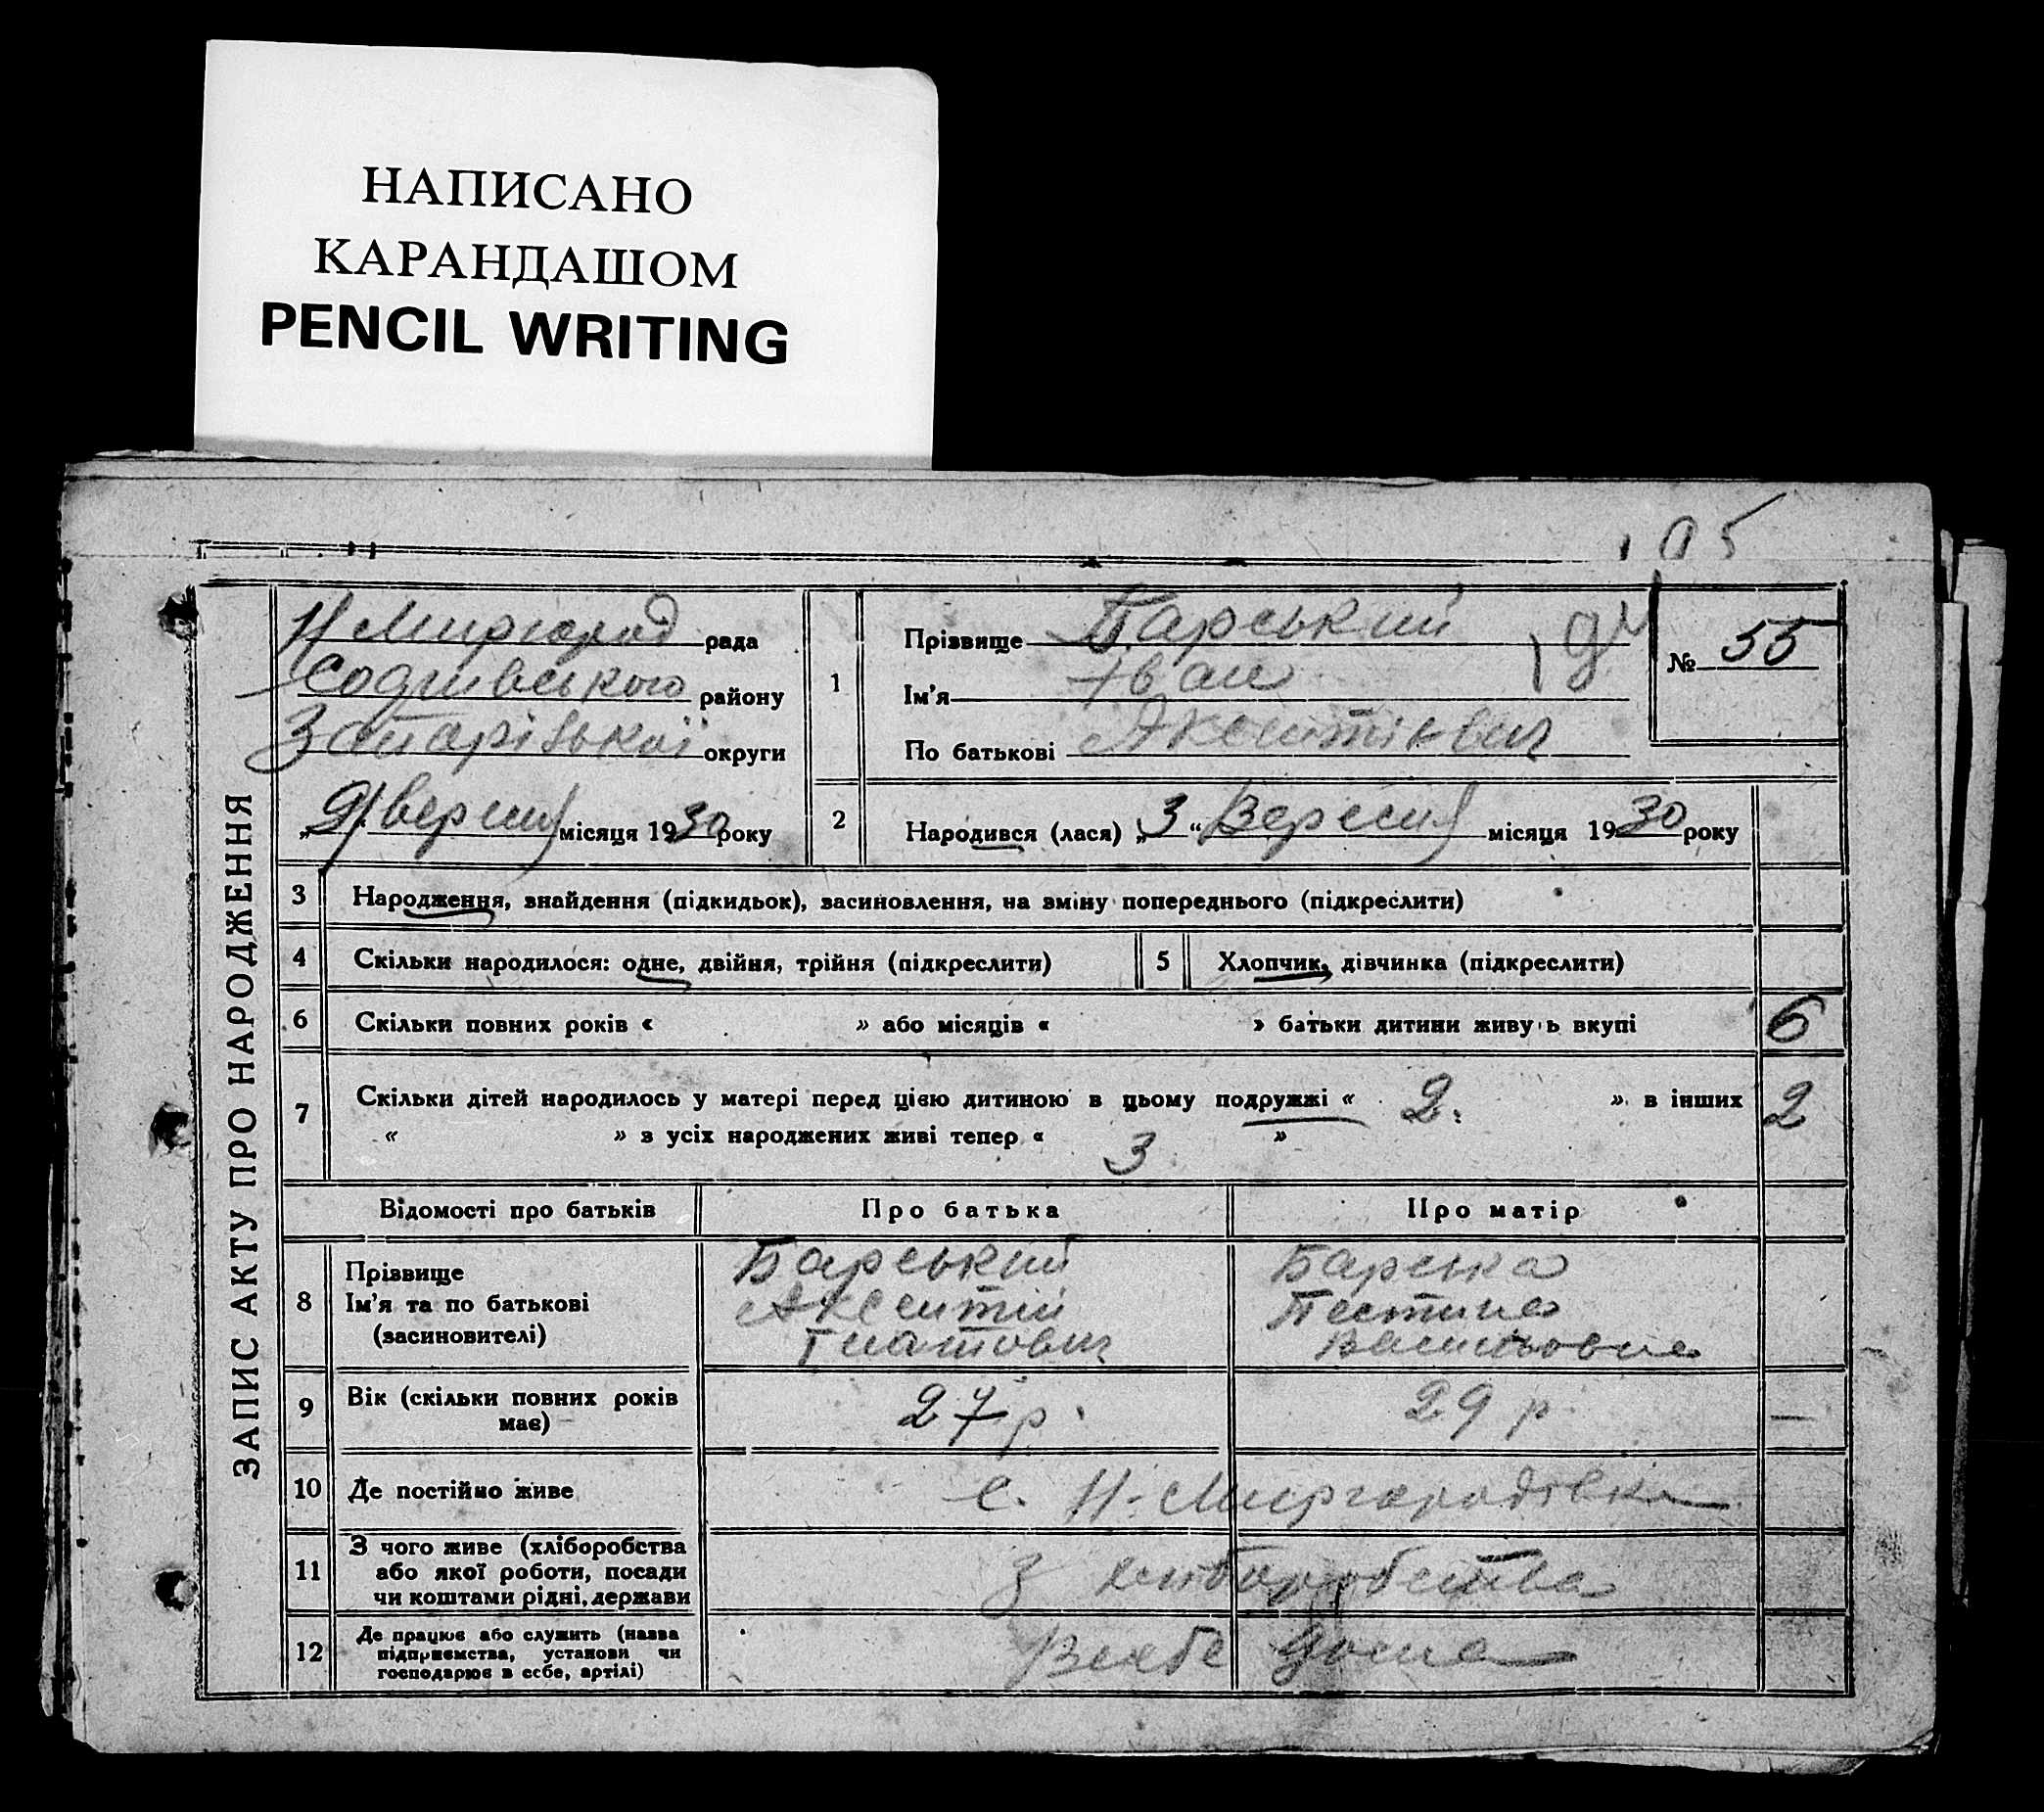 НАПИСАНО
КАРАНДАШОМ
PENCIL WRITING
105
ЗАПИС АКТУ ПРО НАРОДЖЕННЯ
Н Миргород рада
району
Запорізької округи
„9" вересня місяця 1930 року
1
Прізвище Барський
Ім'я Іван
По батькові Аксентієвич
№ 55
2 Народився (лася) „3" Вересня місяця 1930 року
3 Народження, знайдення (підкидьок), засиновлення, на зміну попереднього (підкреслити)
4 Скільки народилося: одне, двійня, трійня (підкреслити)
5 Хлопчик, дівчинка (підкреслити)
6 Скільки повних років « » або місяців « » батьки дитини живуть вкупі 6
7 Скільки дітей народилось у матері перед цією дитиною в цьому подружжі « 2. » в інших 2
« » з усіх народжених живі тепер « 3 »
Відомості про батьків Про батька Про матір
8 Прізвище Барський Барська
Ім'я та по батькові Аксентій Пестина
(засиновителі) Гнатович Васильовна
9 Вік (скільки повних років має) 27 р. 29 р. —
10 Де постійно живе с. Н-Миргородівка
11 З чого живе (хліборобства
або якої роботи, посади
чи коштами рідні, держави
з хліборобства
12 Де працює або служить (назва
підприємства, установи чи
господарює в себе, артілі)
В себе дома